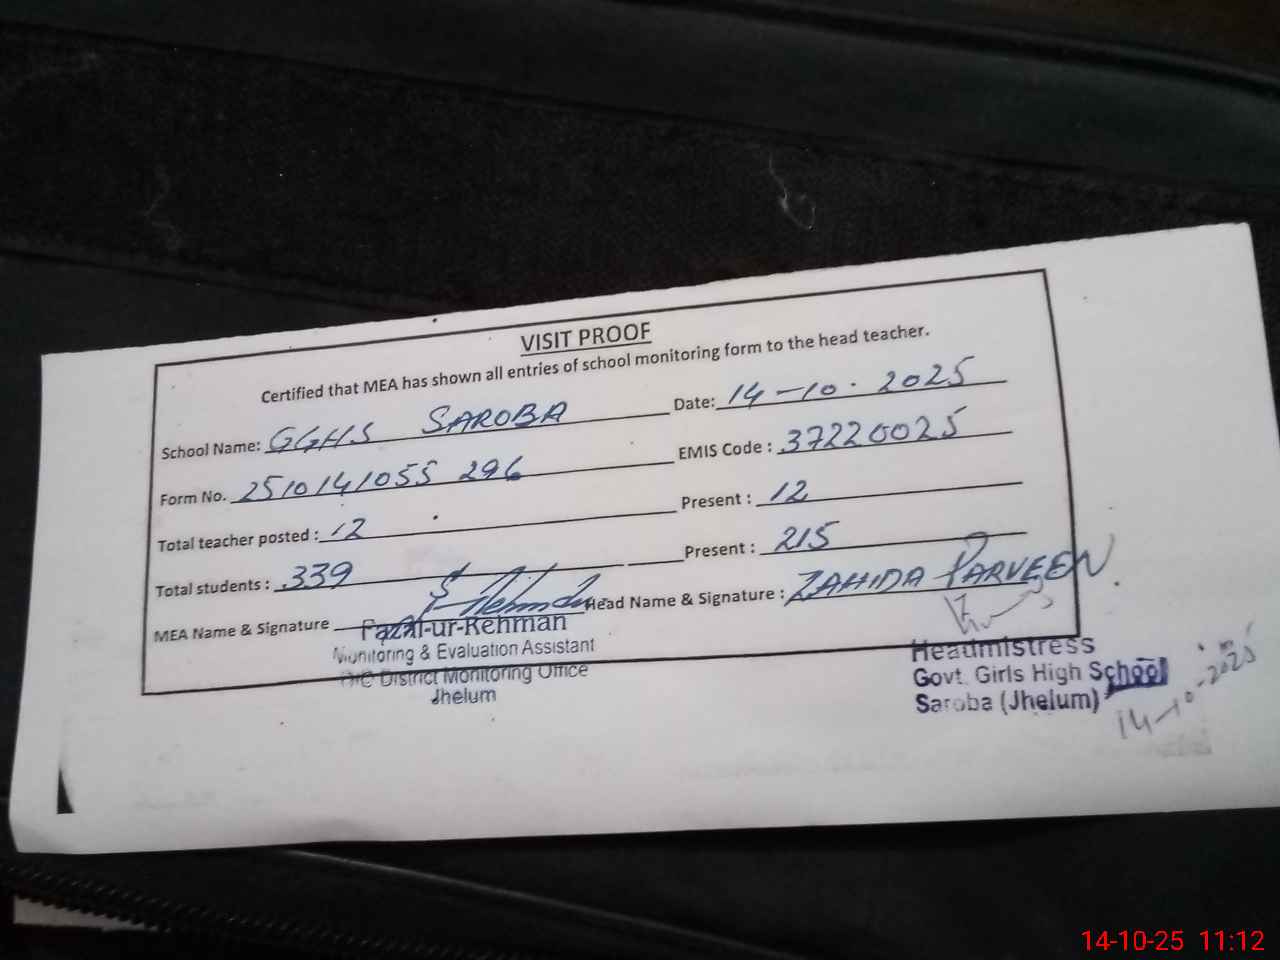 VISIT PROOF
Certified that MEA has shown all entries of school monitoring form to the head teacher.
School Name: GGHS SAROBA Date: 14-10-2025
Form No. 2510141055 296 EMIS Code : 37220025
Total teacher posted : 12 Present : 12
Total students : 339 Present : 215
MEA Name & Signature Head Name & Signature : ZAHIDA PARVEEN
Fazal-ur-Rehman
Monitoring & Evaluation Assistant
District Monitoring Office
Jhelum
Headmistress
Govt. Girls High School
Saroba (Jhelum)
14-10-2025
14-10-25 11:12